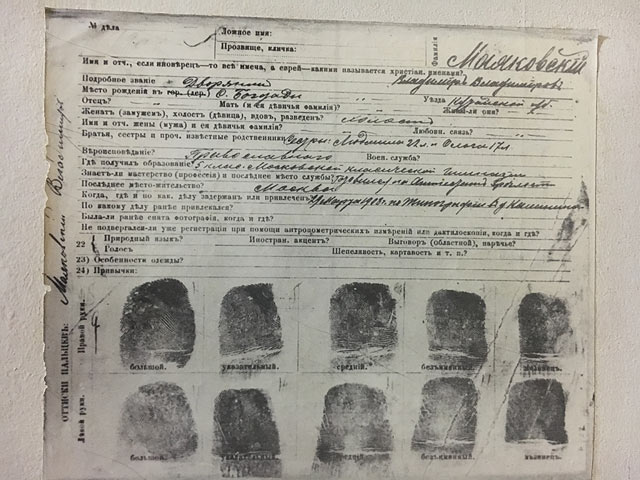 № дѣла
Ложное имя:
Прозвище, кличка:
Фамилія Маяковскій
Имя и отч., если иновѣрецъ—то всѣ имена, а еврей—какими называется христіан. именами? Владиміръ Владиміровъ
Подробное званіе Дворянинъ
Мѣсто рожденія въ гор. (дер.) С. Багдады Уѣзда
Отецъ? Мать (и ея дѣвичья фамилія)? Живы-ли они?
Женатъ (замужемъ), холостъ (дѣвица), вдовъ, разведенъ? Холостъ
Имя и отч. жены (мужа) и ея дѣвичья фамилія? Любовн. связь?
Братья, сестры и проч. извѣстные родственники, Сестры: Людмила 22 л. и Ольга 17 л.
Вѣроисповѣданіе? Православнаго Воен. служба?
Гдѣ получилъ образованіе? 5 класс. Московской классической гимназіи
Знаетъ-ли мастерство (профессія) и послѣднее мѣсто службы?
Послѣднее мѣсто-жительство? Москва
Когда, гдѣ и по как. дѣлу задержанъ или привлеченъ? 29 Марта 1908 г. по типографіи
По какому дѣлу ранѣе привлекался?
Была-ли ранѣе снята фотографія, когда и гдѣ?
Не подвергался-ли уже регистраціи при помощи антропометрическихъ измѣреній или дактилоскопіи, когда и гдѣ?
22 Природный языкъ? Иностран. акцентъ? Выговоръ (областной), нарѣчье?
Голосъ Шепелявость, картавость и т. п.?
23) Особенности одежды?
24) Привычки:
Маяковскій Владиміръ
ОТТИСКИ ПАЛЬЦЕВЪ:
Правой руки.
большой. указательный. средній. безъимянный. мизинецъ.
Лѣвой руки.
большой. указательный. средній. безъимянный. мизинецъ.